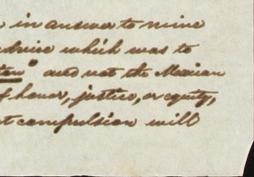 in answer to mine
advice which was to
" and not the Mexican
of honor, justice, or equity,
compulsion will